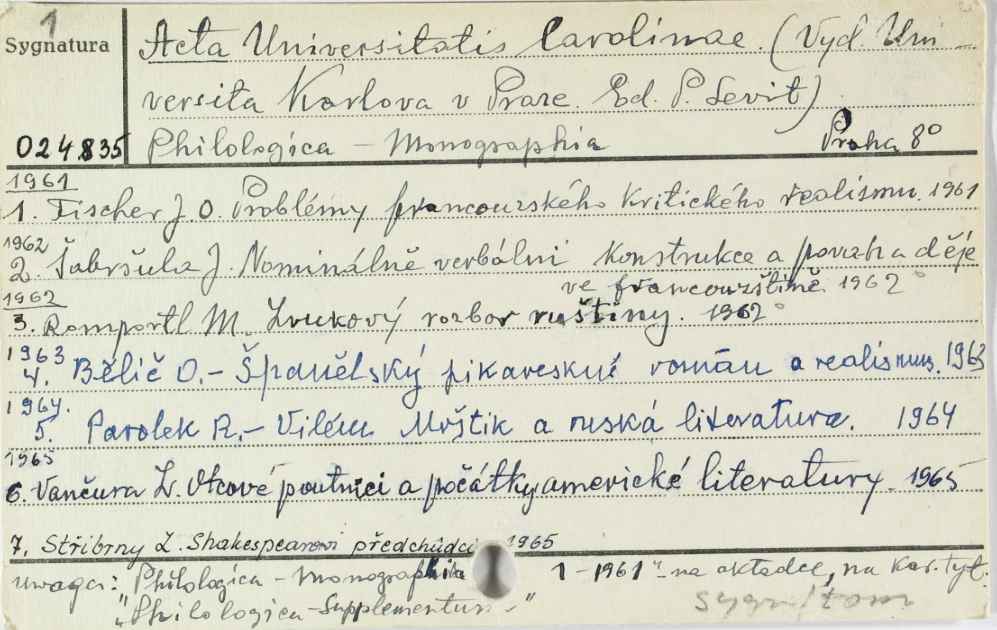 1
Sygnatura
Acta Universitatis Carolinae. (Vyd. Uni-
versita Karlova v Praze. Ed. P. Levit)
024835
Philologica - Monographia Praha 8°
1961
1. Fischer J. O. Problémy francouzského kritického realismu. 1961
1962
2. Šabršula J. Nominálně verbálni konstrukce a povaha děje
ve francouzštině. 1962°
1962
3. Romportl M. Zvukový rozbor ruštiny. 1962°
1963
4. Bělič O. - Španělský pikareskní román a realismus. 1963
1964.
5. Parolek R. - Vilém Mrštík a ruská literatura. 1964
1965
6. Vančura Z. Otcové poutníci a počátky americké literatury. 1965
7. Střibrny Z. Shakespearovi předchůdci 1965
uwaga: Philologica - Monographia 1-1961 - na okładce, na kar. tyt.
"Philologica - Supplementum - "